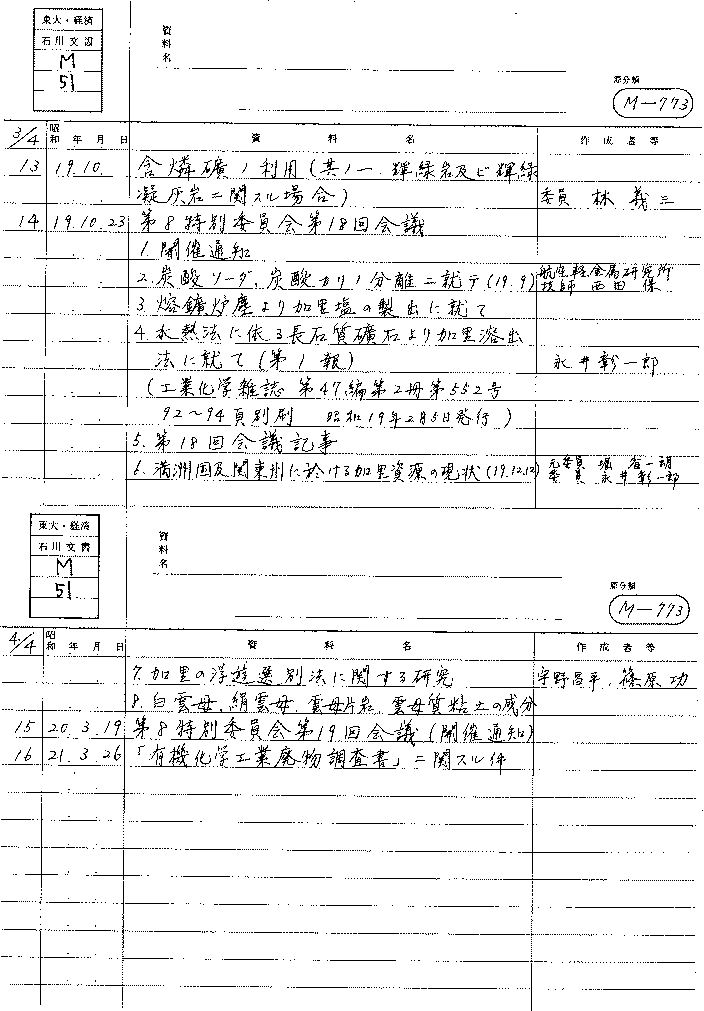 東大・経済
石川文書
M
51
資料名
原分類
M-773
3/4 昭和 年 月 日 資料名 作成者等
13 19.10. 含燐礦ノ利用(其ノ一.輝緑岩及ビ輝緑
凝灰岩ニ関スル場合) 委員 林 義三
14 19.10.23 第8特別委員会第18回会議
1.開催通知
2.炭酸ソーダ,炭酸カリノ分離ニ就テ(19.9) 航空軽金属研究所 技師 西田 保
3.熔鑛炉塵より加里塩の製出に就て
4.水熱法に依る長石質礦石より加里溶出
法に就て(第1報) 永井彰一郎
(工業化学雑誌 第47編第2冊第552号
92~94頁別刷 昭和19年2月5日発行)
5.第18回会議記事
6.満洲国及関東州に於ける加里資源の現状(19.12.12) 元委員 堀 省一朗
委員 永井彰一郎
東大・経済
石川文書
M
51
資料名
原分類
M-773
4/4 昭和 年 月 日 資料名 作成者等
7.加里の浮遊選別法に関する研究 宇野昌平.篠原功
8.白雲母,絹雲母,雲母片岩,雲母質粘土の成分
15 20.3.19 第8特別委員会第19回会議(開催通知)
16 21.3.26 「有機化学工業廃物調査書」ニ関スル件